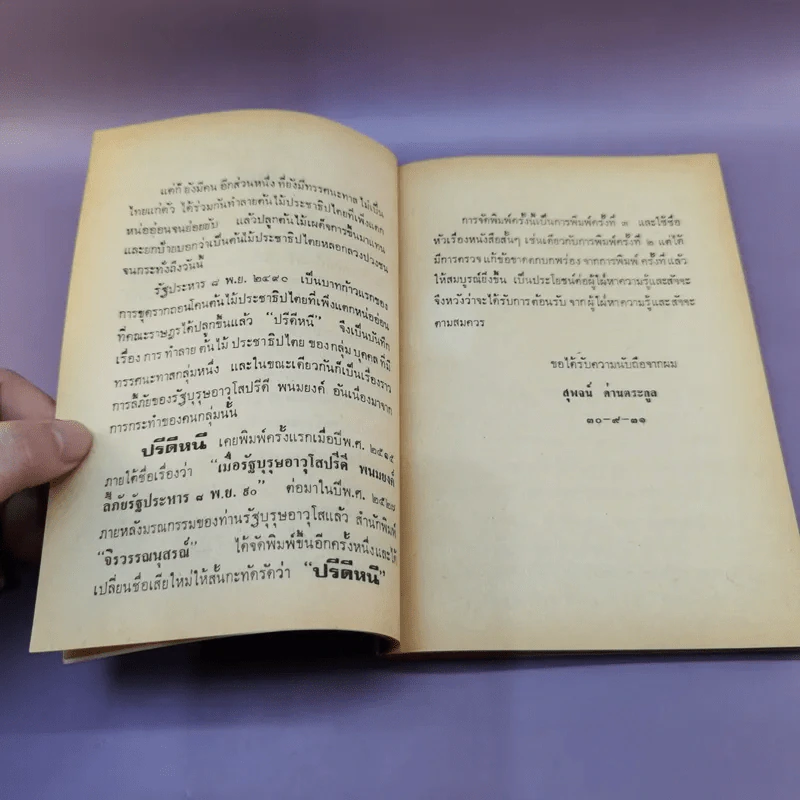 แต่ก็ ยังมีคน อีกส่วนหนึ่ง ที่ยังมีทรรศนะทาส ไม่เป็น
ไทยแก่ตัว ได้ร่วมกันทำลายต้นไม้ประชาธิปไตยที่เพิ่งแตก
หน่ออ่อนจนย่อยยับ แล้วปลูกต้นไม้เผด็จการขึ้นมาแทน
และยกป้ายบอกว่าเป็นต้นไม้ประชาธิปไตยหลอกลวงปวงชน
จนกระทั่งถึงวันนี้
รัฐประหาร ๘ พ.ย. ๒๔๙๐ เป็นบาทก้าวแรกของ
การขุดรากถอนโคนต้นไม้ประชาธิปไตยที่เพิ่งแตกหน่ออ่อน
ที่คณะราษฎรได้ปลูกขึ้นแล้ว "ปรีดีหนี" จึงเป็นบันทึก
เรื่อง การ ทำลาย ต้นไม้ ประชาธิปไตย ของ กลุ่ม บุคคล ที่มี
ทรรศนะทาสกลุ่มหนึ่ง และในขณะเดียวกันก็เป็นเรื่องราว
การลี้ภัยของรัฐบุรุษอาวุโสปรีดี พนมยงค์ อันเนื่องมาจาก
การกระทำของคนกลุ่มนั้น
ปรีดีหนี เคยพิมพ์ครั้งแรกเมื่อปีพ.ศ. ๒๕๑๕
ภายใต้ชื่อเรื่องว่า "เมื่อรัฐบุรุษอาวุโสปรีดี พนมยงค์
ลี้ภัยรัฐประหาร ๘ พ.ย. ๙๐" ต่อมาในปีพ.ศ. ๒๕๒๗
ภายหลังมรณกรรมของท่านรัฐบุรุษอาวุโสแล้ว สำนักพิมพ์
"จิรวรรณนุสรณ์" ได้จัดพิมพ์ขึ้นอีกครั้งหนึ่งและได้
เปลี่ยนชื่อเสียใหม่ให้สั้นกะทัดรัดว่า "ปรีดีหนี"
การจัดพิมพ์ครั้งนี้เป็นการพิมพ์ครั้งที่ ๓ และใช้ชื่อ
หัวเรื่องหนังสือสั้นๆ เช่นเดียวกับการพิมพ์ครั้งที่ ๒ แต่ได้
มีการตรวจ แก้ข้อขาดตกบกพร่อง จากการพิมพ์ ครั้งที่ แล้ว
ให้สมบูรณ์ยิ่งขึ้น เป็นประโยชน์ต่อผู้ใฝ่หาความรู้และสัจจะ
จึงหวังว่าจะได้รับการต้อนรับ จากผู้ใฝ่หาความรู้และสัจจะ
ตามสมควร
ขอได้รับความนับถือจากผม
สุพจน์ ด่านตระกูล
๓๐-๙-๓๑